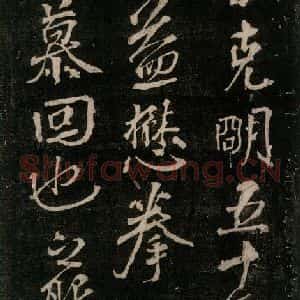 克朙五十
益懋拳
慕回也之
Shufawang.CN